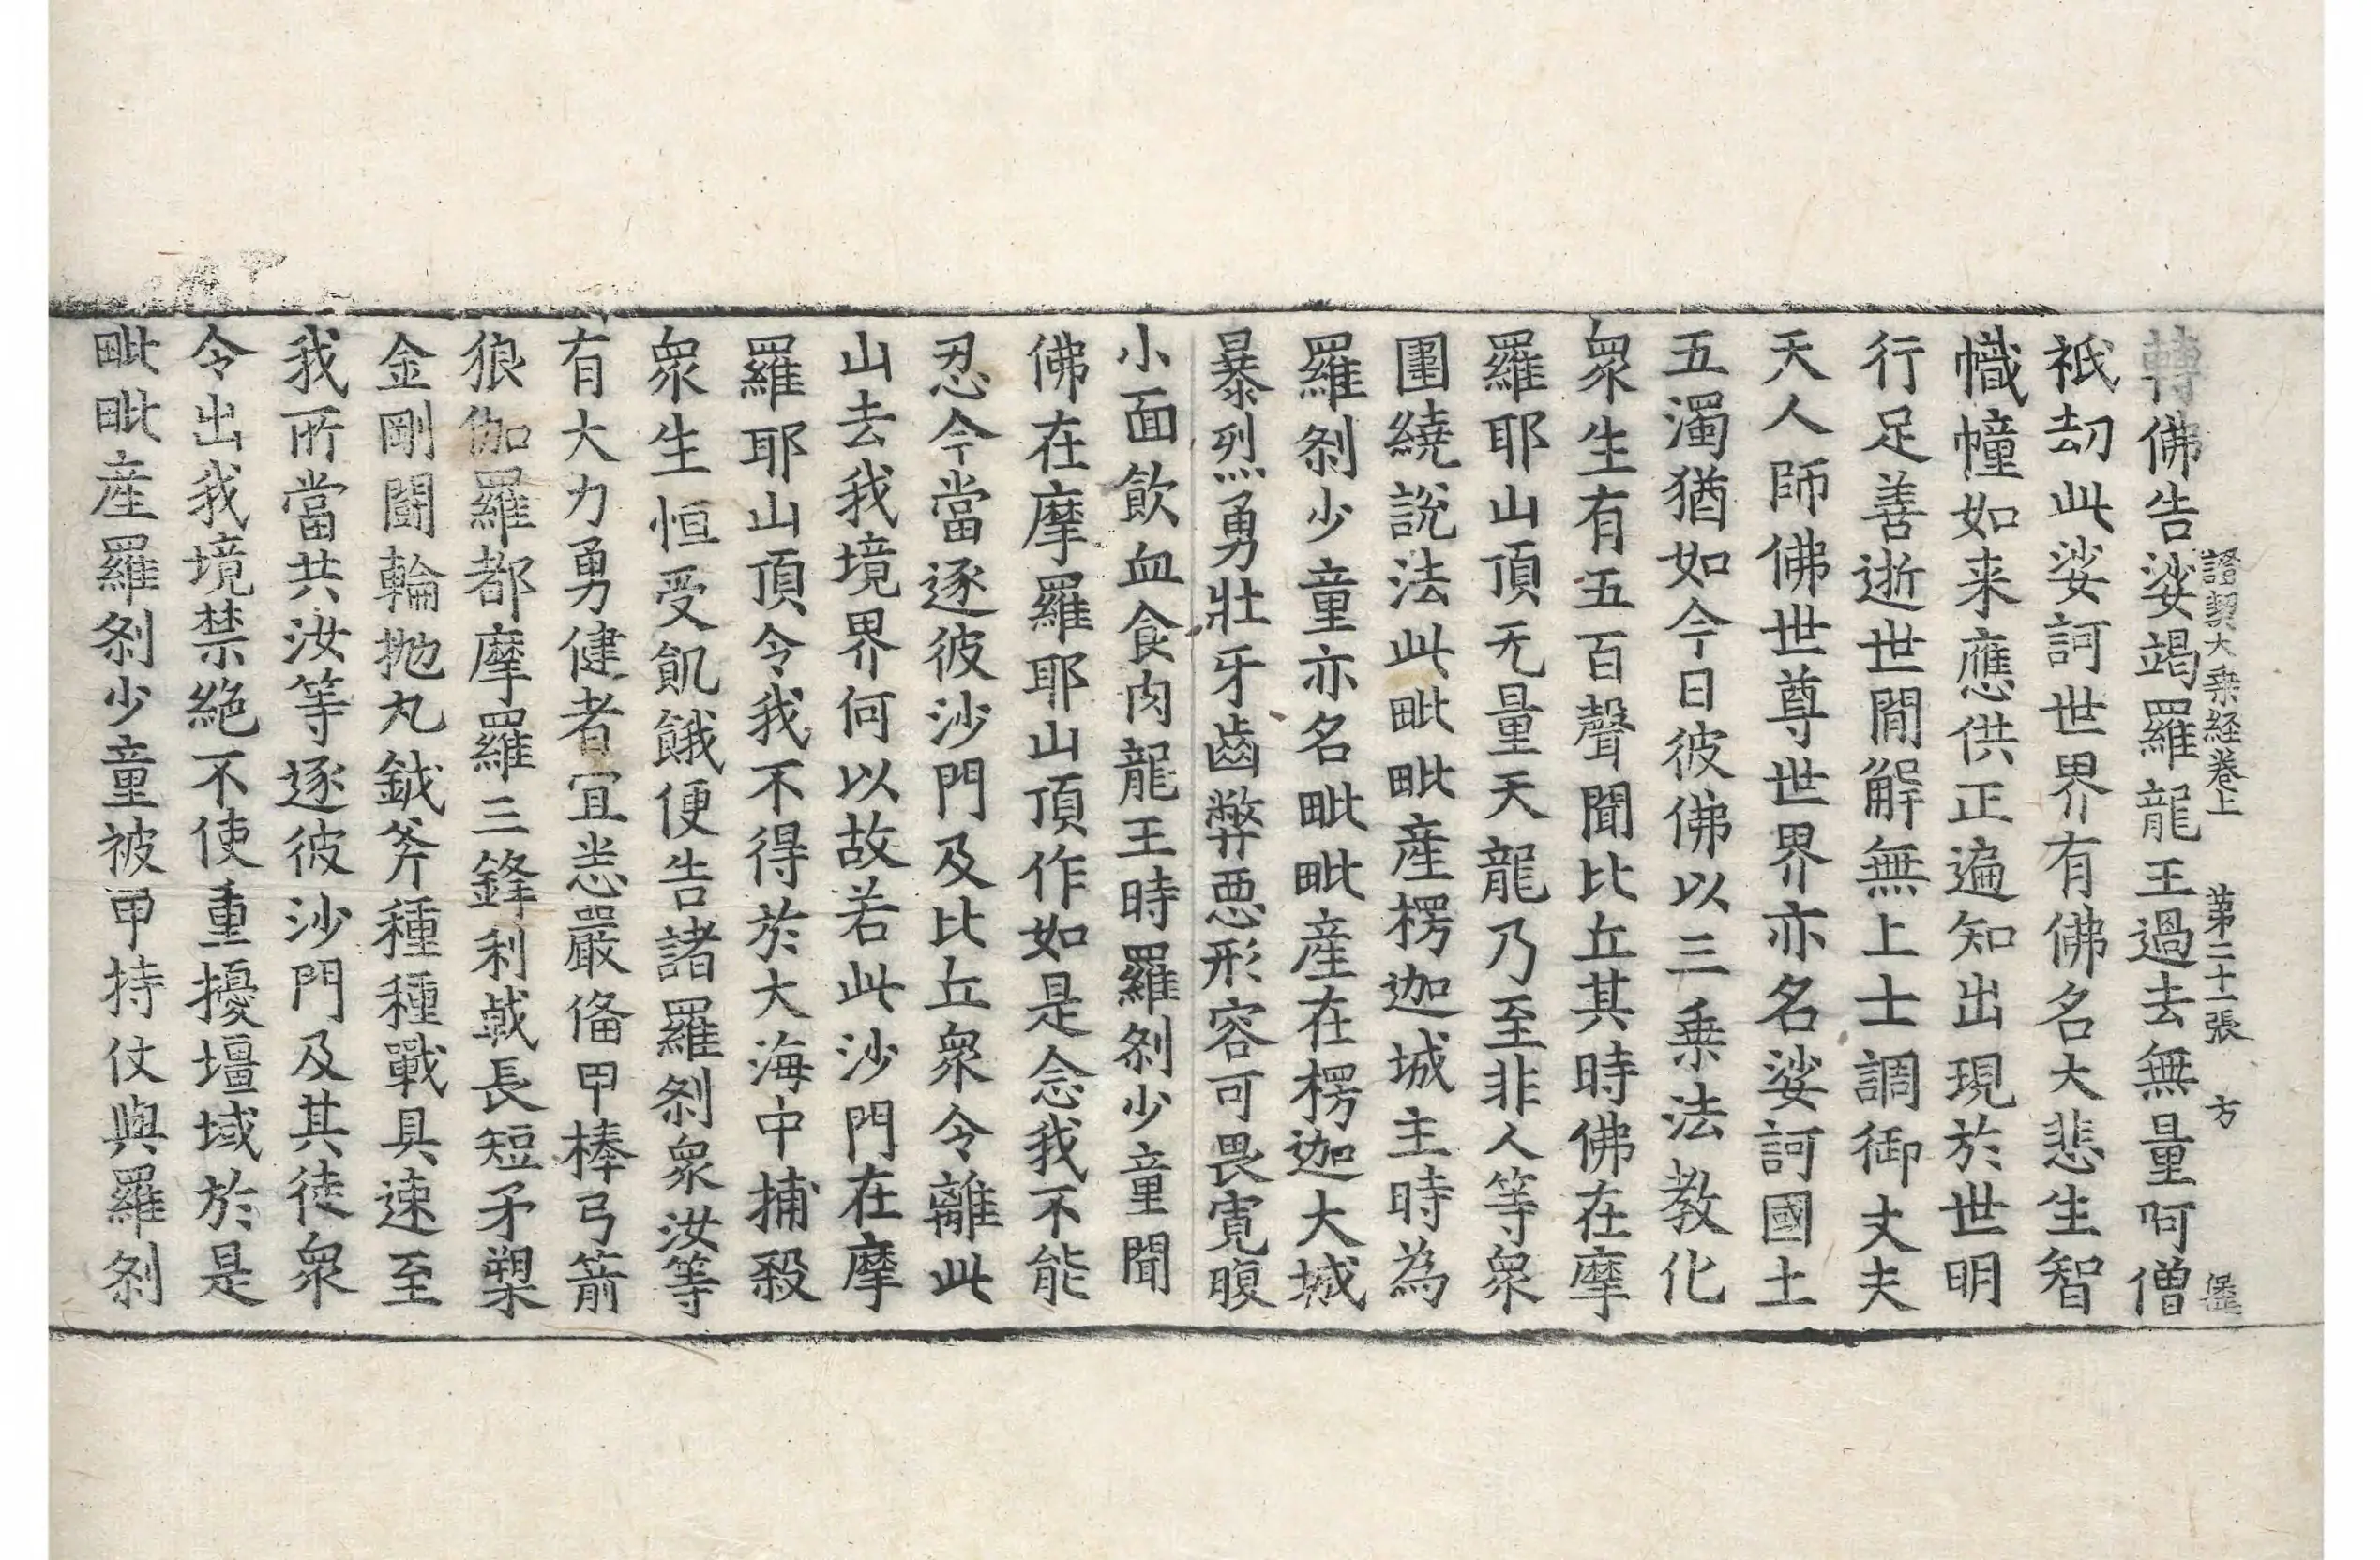 證契大乗経卷上 苐二十一張 方
轉佛告娑竭羅龍王過去無量阿僧
祇劫此娑訶世界有佛名大悲生智
幟幢如来應供正遍知出現於世明
行足善逝世間解無上士調御丈夫
天人師佛世尊世界亦名娑訶國土
五濁猶如今日彼佛以三乗法教化
衆生有五百聲聞比丘其時佛在摩
羅耶山頂无量天龍乃至非人等衆
圍繞說法此毗毗產楞迦城主時為
羅刹少童亦名毗毗產在楞迦大城
暴烈勇壯牙齒弊惡形容可畏寛腹
小面飲血食肉龍王時羅刹少童聞
佛在摩羅耶山頂作如是念我不能
忍今當逐彼沙門及比丘衆令離此
山去我境界何以故若此沙門在摩
羅耶山頂令我不得於大海中捕殺
衆生恒受飢餓便告諸羅刹衆汝等
有大力勇健者冝悉嚴俻甲棒弓箭
狼伽羅都摩羅三鋒利戟長短矛槊
金剛鬪輪拋丸鉞斧種種戰具速至
我所當共汝等逐彼沙門及其徒衆
令出我境禁絶不使重擾壃域於是
毗毗產羅刹少童被甲持仗與羅刹